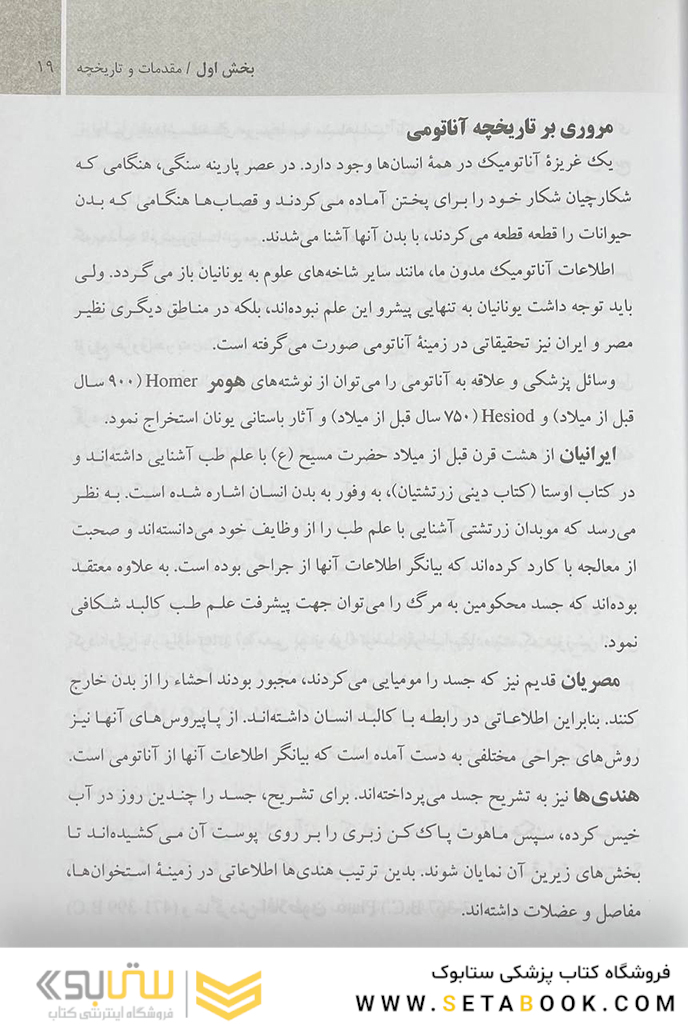 بخش اول / مقدمات و تاریخچه ۱۹
مروری بر تاریخچه آناتومی
یک غریزهٔ آناتومیک در همهٔ انسان‌ها وجود دارد. در عصر پارینه سنگی، هنگامی که
شکارچیان شکار خود را برای پختن آماده می‌کردند و قصاب‌ها هنگامی که بدن
حیوانات را قطعه قطعه می‌کردند، با بدن آنها آشنا می‌شدند.
اطلاعات آناتومیک مدون ما، مانند سایر شاخه‌های علوم به یونانیان باز می‌گردد. ولی
باید توجه داشت یونانیان به تنهایی پیشرو این علم نبوده‌اند، بلکه در مناطق دیگری نظیر
مصر و ایران نیز تحقیقاتی در زمینهٔ آناتومی صورت می‌گرفته است.
وسائل پزشکی و علاقه به آناتومی را می‌توان از نوشته‌های هومر Homer (۹۰۰ سال
قبل از میلاد) و Hesiod (۷۵۰ سال قبل از میلاد) و آثار باستانی یونان استخراج نمود.
ایرانیان از هشت قرن قبل از میلاد حضرت مسیح (ع) با علم طب آشنایی داشته‌اند و
در کتاب اوستا (کتاب دینی زرتشتیان)، به وفور به بدن انسان اشاره شده است. به نظر
می‌رسد که موبدان زرتشتی آشنایی با علم طب را از وظایف خود می‌دانسته‌اند و صحبت
از معالجه با کارد کرده‌اند که بیانگر اطلاعات آنها از جراحی بوده است. به علاوه معتقد
بوده‌اند که جسد محکومین به مرگ را می‌توان جهت پیشرفت علم طب کالبد شکافی
نمود.
مصریان قدیم نیز که جسد را مومیایی می‌کردند، مجبور بودند احشاء را از بدن خارج
کنند. بنابراین اطلاعاتی در رابطه با کالبد انسان داشته‌اند. از پاپیروس‌های آنها نیز
روش‌های جراحی مختلفی به دست آمده است که بیانگر اطلاعات آنها از آناتومی است.
هندی‌ها نیز به تشریح جسد می‌پرداخته‌اند. برای تشریح، جسد را چندین روز در آب
خیس کرده، سپس ماهوت پاک‌کن زبری را بر روی پوست آن می‌کشیده‌اند تا
بخش‌های زیرین آن نمایان شوند. بدین ترتیب هندی‌ها اطلاعاتی در زمینهٔ استخوان‌ها،
مفاصل و عضلات داشته‌اند.
فروشگاه کتاب پزشکی ستابوک
WWW.SETABOOK.COM
ستابوک
فروشگاه اینترنتی کتاب